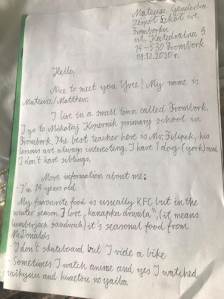 Mateusz
Zespół Szkół im.
Fromborku
ul. Katedralna 9
14-530 Frombork
09.12.2020r.
Hello,
Nice to meet you Yvre! My name is
Mateusz/Matthew.
I live in a small town called Frombork.
I go to Mikołaj Kopernik primary school in
Frombork. The best teacher here is Mr. Filipek, his
lessons are always interesting. I have 1 dog (york) and
I don't have siblings.
More information about me:
I'm 14 years old
My favourite food is usually KFC but in the
winter season I love „kanapka drwala" (it means
lumberjack sandwich) it's seasonal food from
McDonalds
I don't skateboard but I ride a bike
Sometimes I watch anime and yes I watched
and kimetsu no yaiba